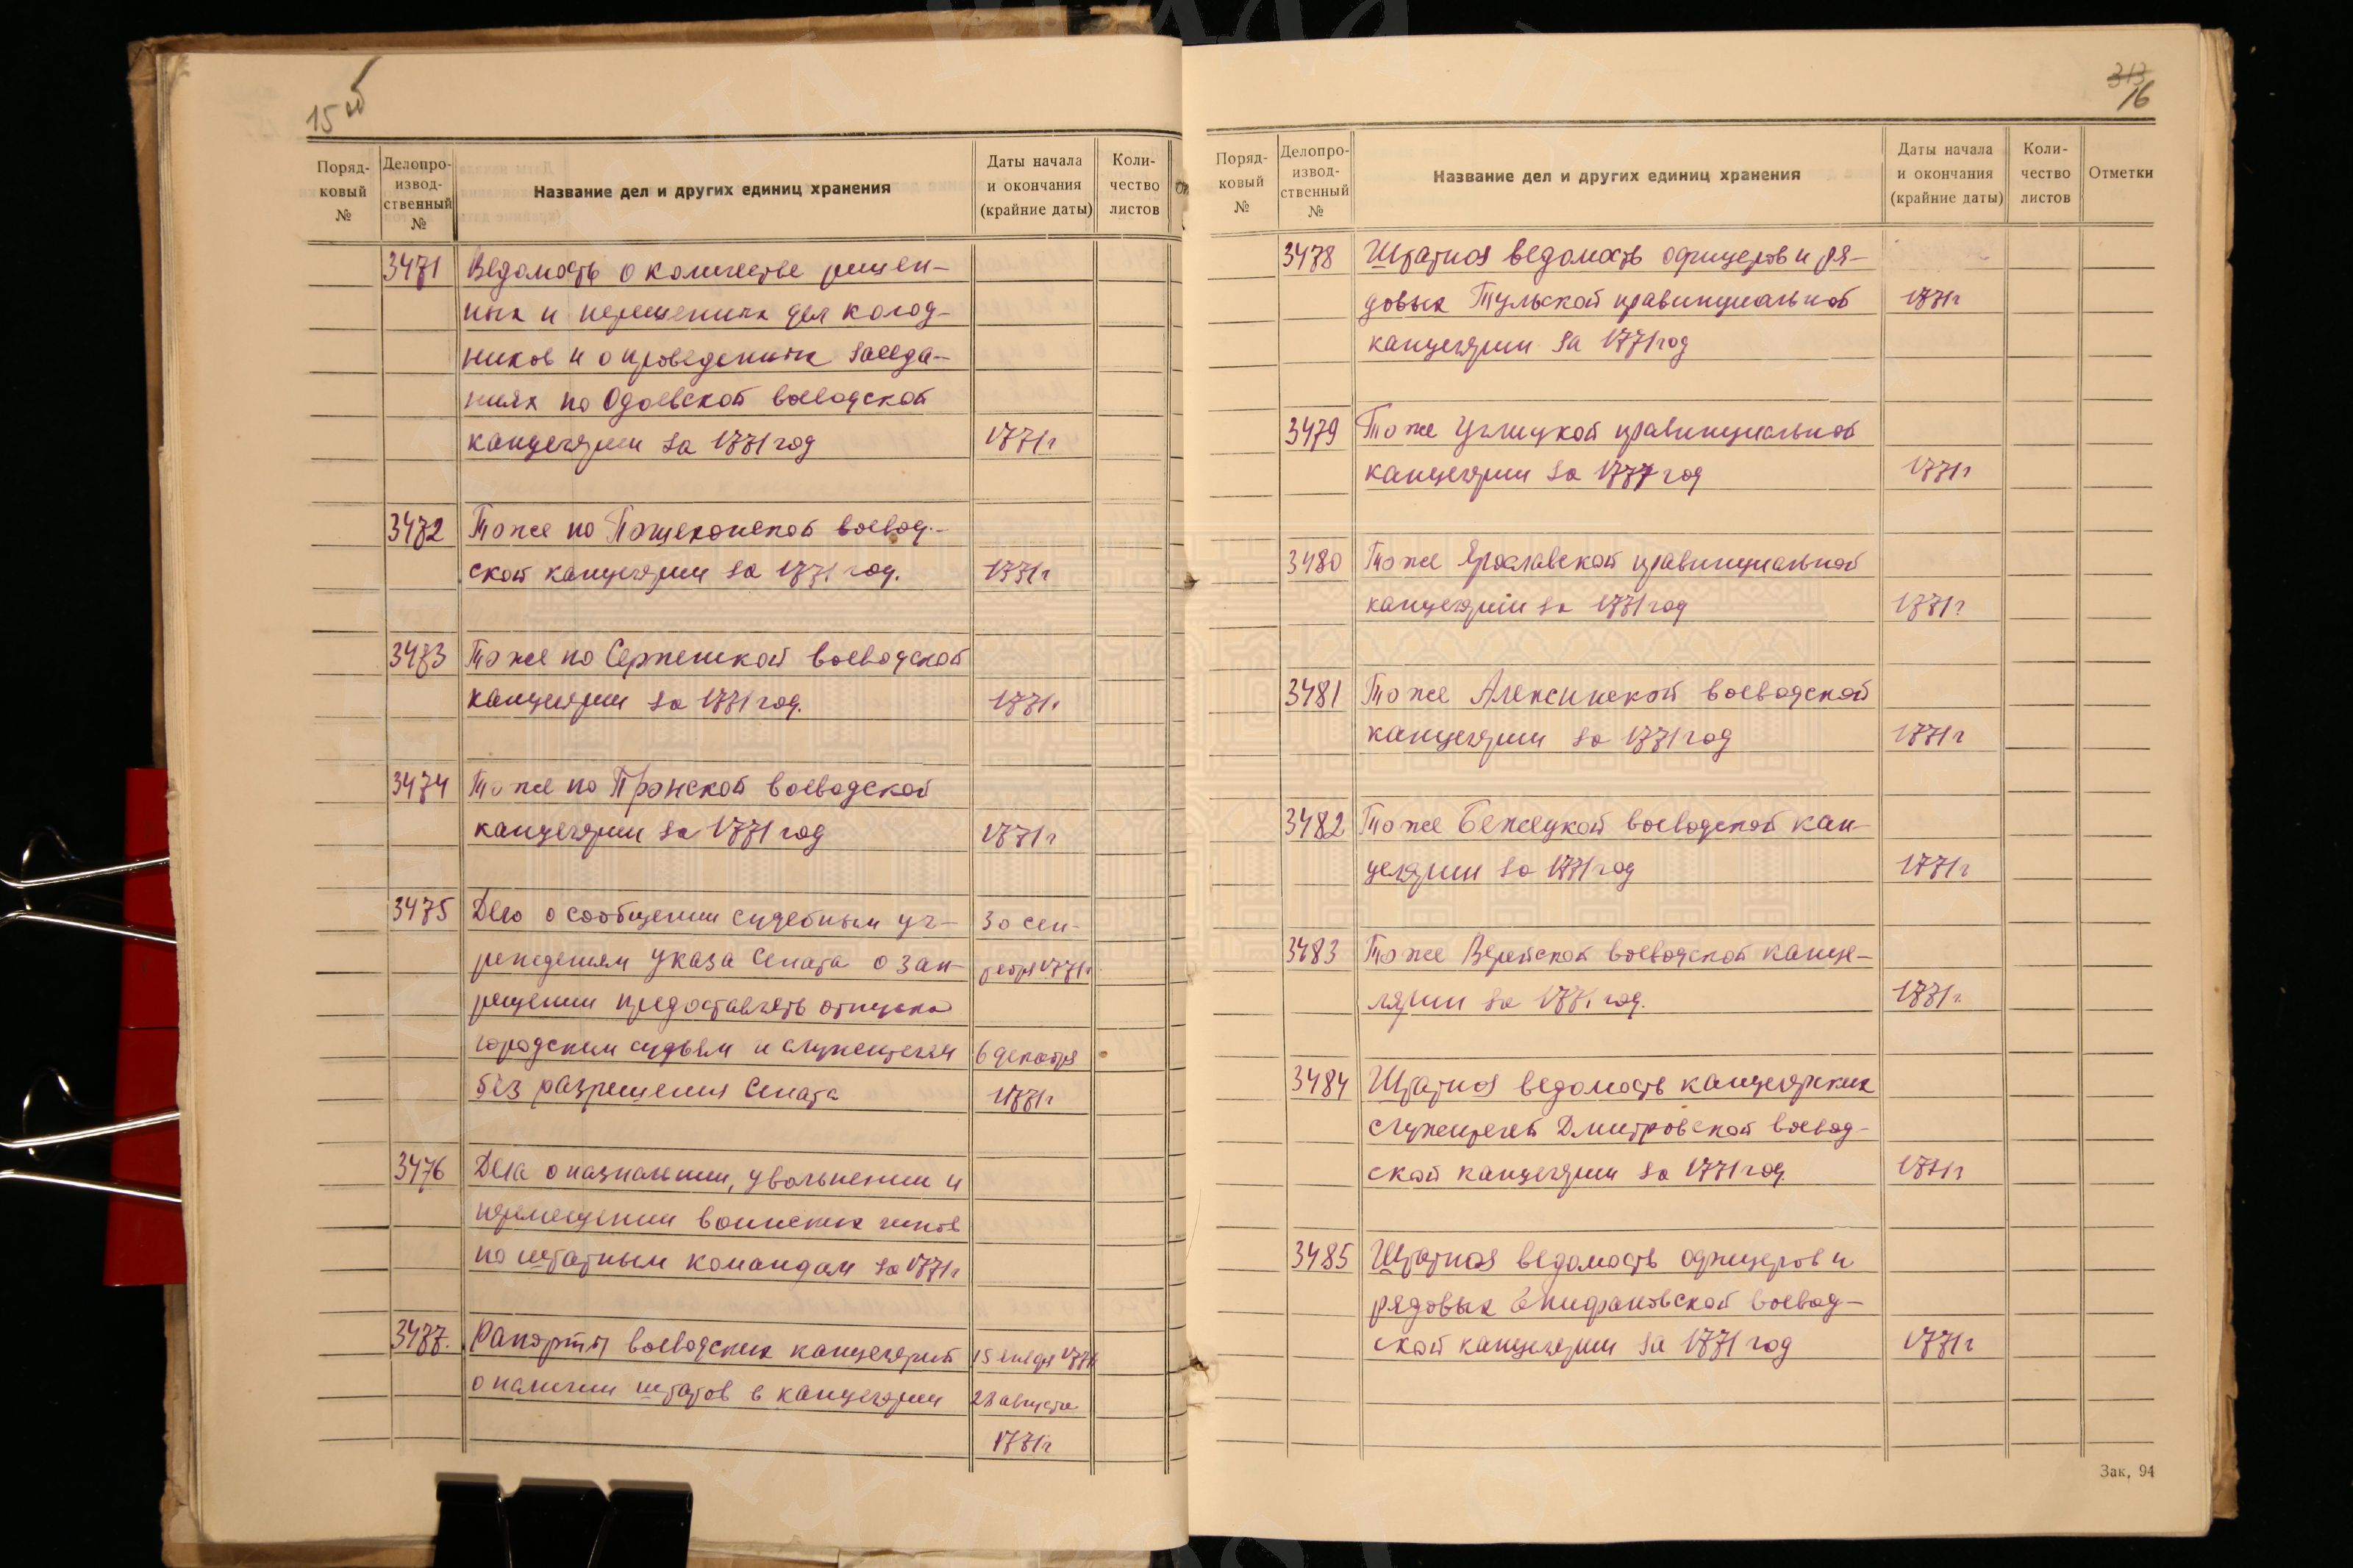 15 об
Поряд-
ковый
№
Делопро-
извод-
ственный
№
Название дел и других единиц хранения
Даты начала
и окончания
(крайние даты)
Коли-
чество
листов
3471 Ведомость о количестве решен-
ных и нерешенных дел колод-
ников и о проведенных заседа-
ниях по Одоевской воеводской
канцелярии за 1771 год 1771 г
3472 То же по Пошехонской воевод-
ской канцелярии за 1771 год. 1771 г
3473 То же по Серпейской воеводской
канцелярии за 1771 год. 1771 г
3474 То же по Пронской воеводской
канцелярии за 1771 год 1771 г
3475 Дело о сообщении судебным уч- 30 сен-
реждениям указа Сената о зап- тября 1771 г
рещении предоставлять отпуска
городским судьям и служителям 6 декабря
без разрешения Сената 1771 г
3476 Дела о назначении, увольнении и
перемещении воинских чинов
по штатным командам за 1771 г
3477. Рапорты воеводских канцелярий 15 января 1771
о наличии штатов в канцелярии 28 августа
1771 г
313
16
Поряд-
ковый
№
Делопро-
извод-
ственный
№
Название дел и других единиц хранения
Даты начала
и окончания
(крайние даты)
Коли-
чество
листов
Отметки
3478 Штатная ведомость офицеров и ря-
довых Тульской правинциальной 1771 г
канцелярии за 1771 год
3479 То же Углицкой правинциальной
канцелярии за 1777 год 1771 г
3480 То же Ярославской правинциальной
канцелярии за 1771 год 1771 г
3481 То же Алексинской воеводской
канцелярии за 1771 год 1771 г
3482 То же Бежецкой воеводской кан-
целярии за 1771 год 1771 г
3483 То же Верейской воеводской канце-
лярии за 1771 год. 1771 г
3484 Штатная ведомость канцелярских
служителей Дмитровской воевод-
ской канцелярии за 1771 год. 1771 г
3485 Штатная ведомость офицеров и
рядовых Епифановской воевод-
ской канцелярии за 1771 год 1771 г
Зак. 94